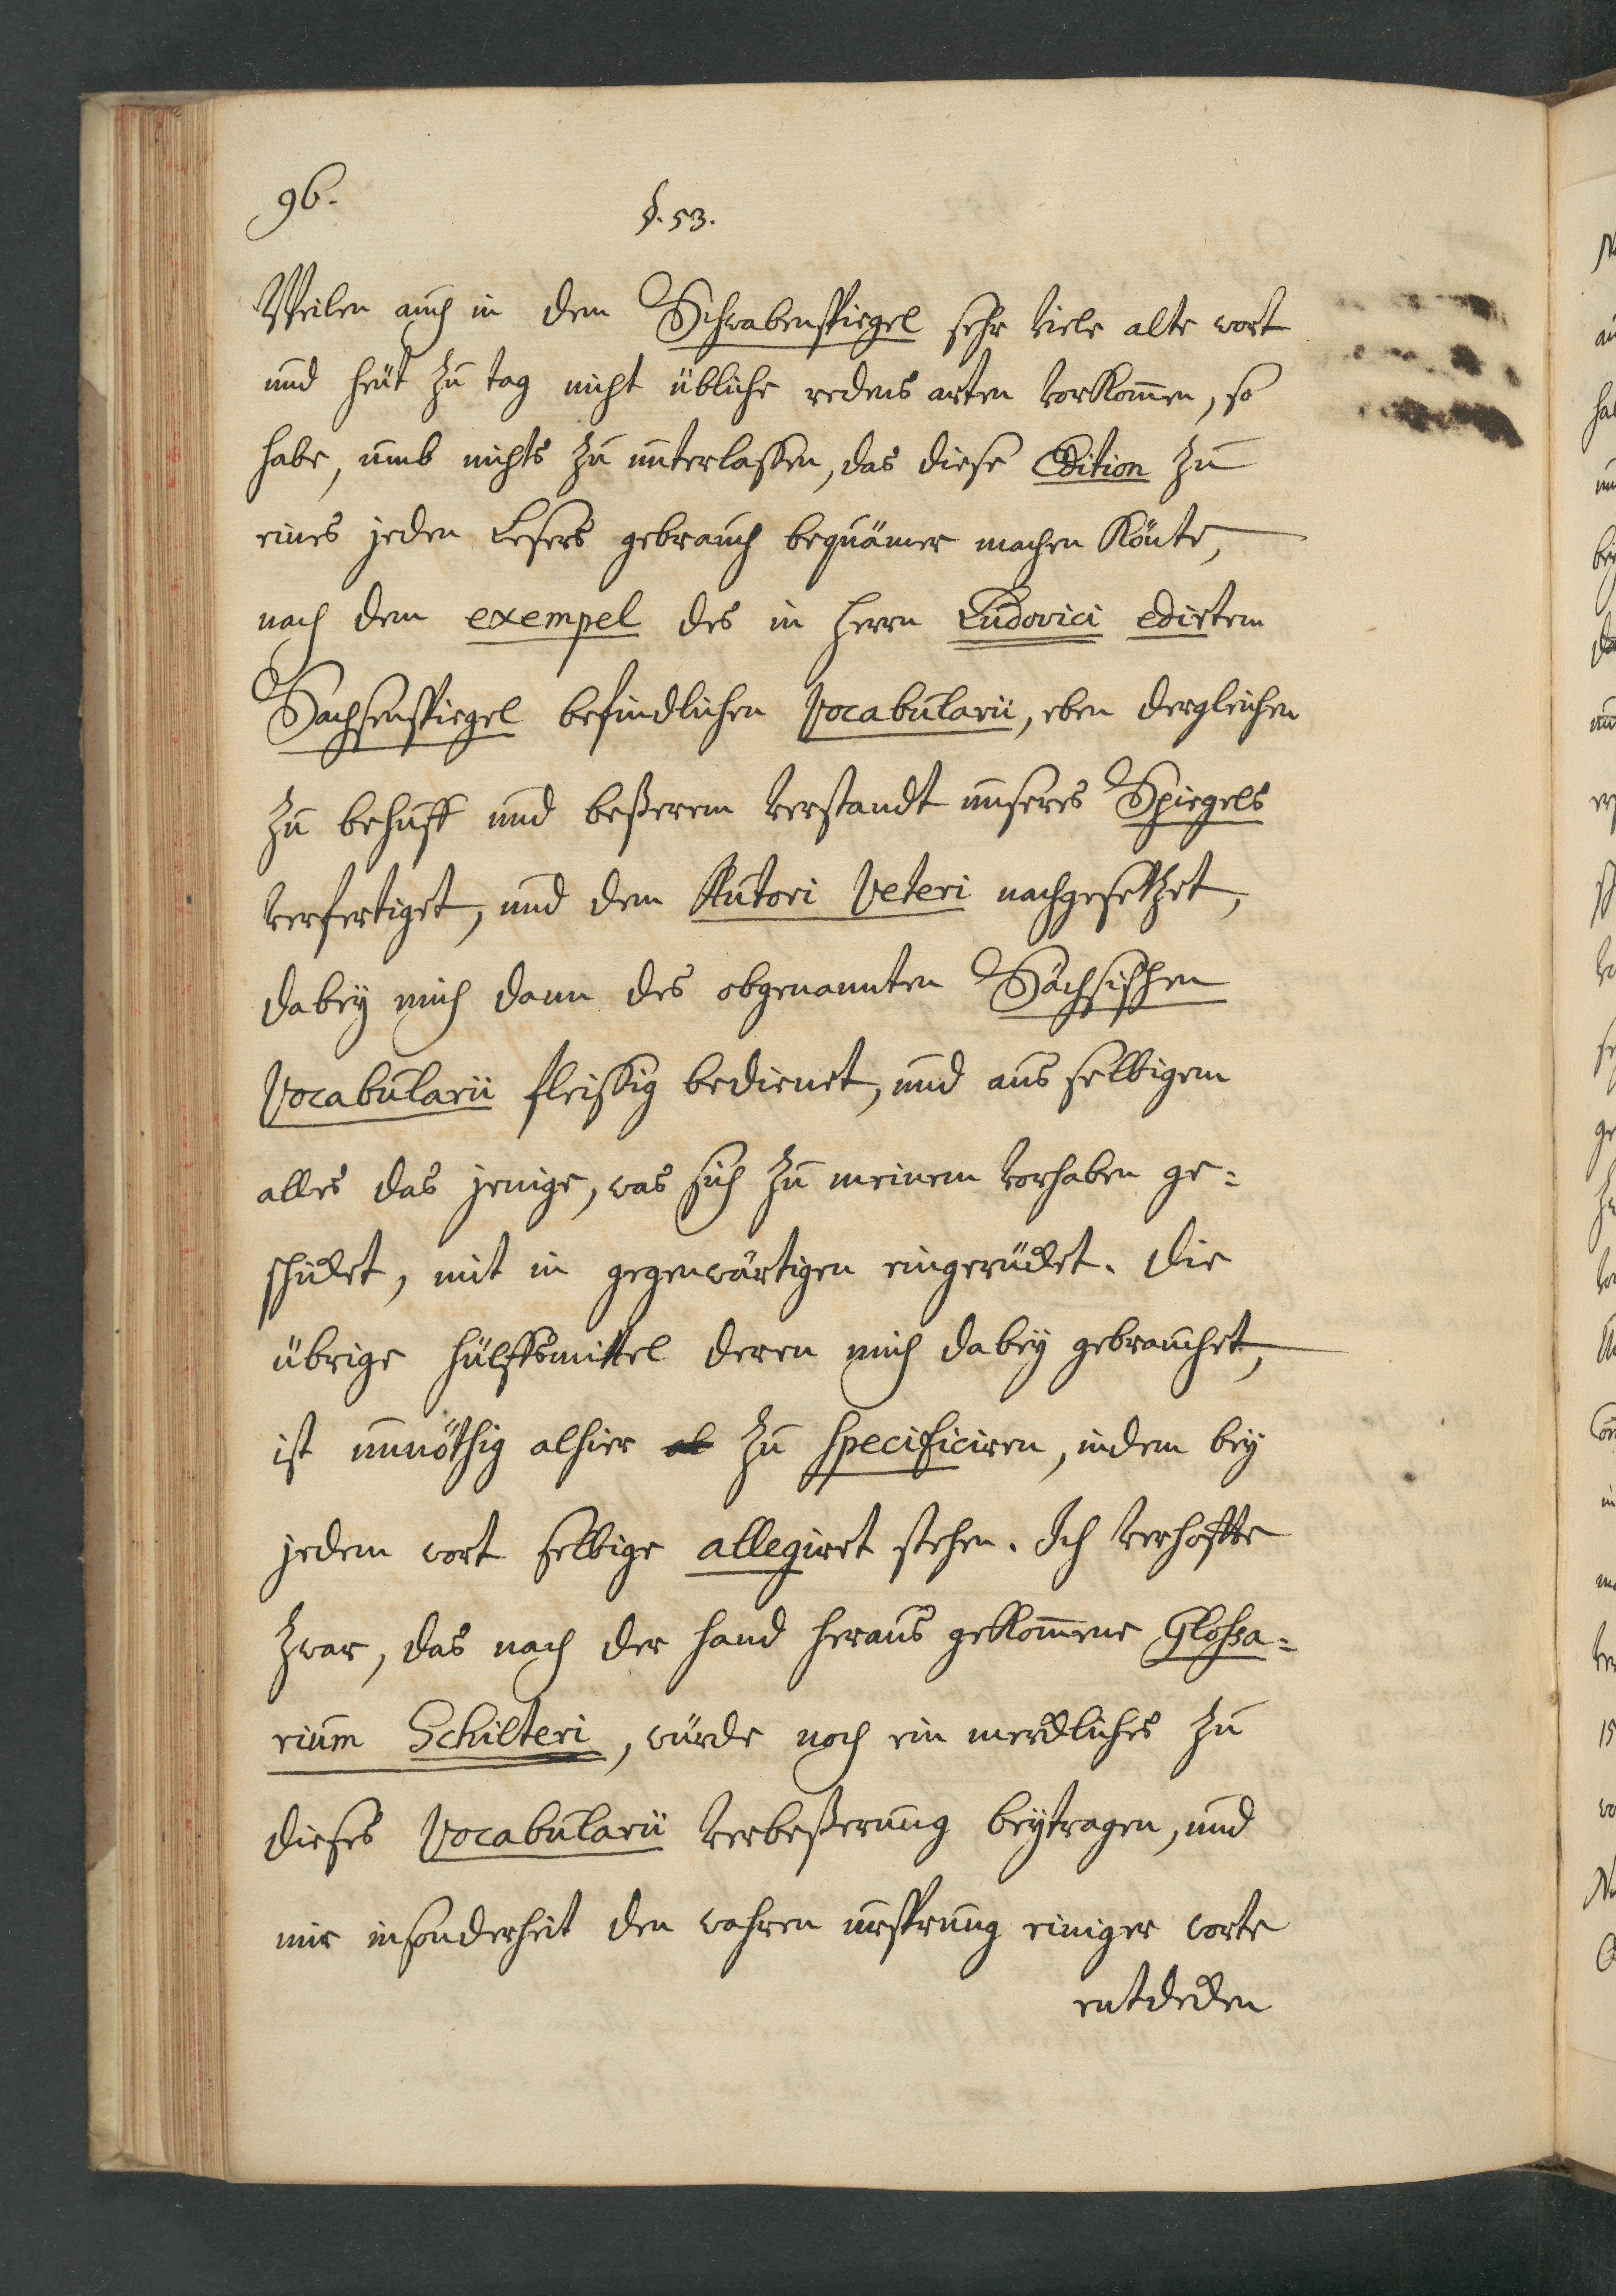 96.
§. 53.
Weilen auch in dem Schwabenspiegel sehr viele alte wort
und heüt zu tag nicht übliche redens arten vorkom̄en, so
habe, umb nichts zu unterlassen, das diese Edition zu
eines jeden Lesers gebrauch bequämer machen könte,
nach dem exempel des in Herrn Ludovici edirtem
Sachsenspiegel befindlichen Vocabularii, eben dergleichen
zu behuff und beßerem verstandt unseres Spiegels
verfertiget, und dem Autori Veteri nachgesetzet,
dabeÿ mich dann des obgenannten Sächsischen
Vocabularii fleissig bedienet, und aus selbigem
alles das jenige, was sich zu meinem vorhaben ge=
schicket, mit in gegenwärtigen eingerücket. Die
übrige hülffsmittel deren mich dabeÿ gebrauchet,
ist unnöthig alhier al zu specificiren, indem beÿ
jedem wort selbige allegiret stehen. Ich verhoffte
zwar, das nach der hand heraus gekom̄ene Glossa=
rium Schilteri, würde noch ein merckliches zu
dieses Vocabularii verbeßerung beÿtragen, und
mir insonderheit den wahren ursprung einiger worte
entdecken